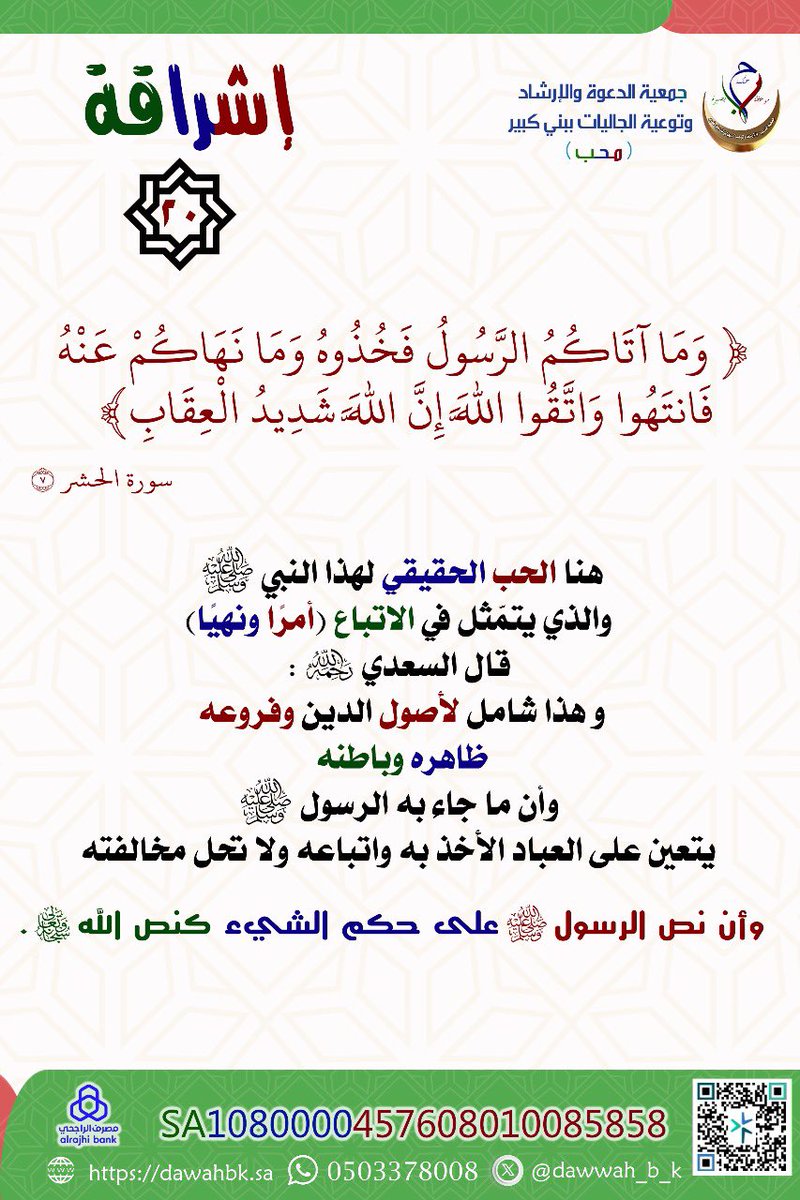 إشراقة
٢٠
جمعية الدعوة والإرشاد
وتوعية الجاليات ببني كبير
(محب)
﴿ وَمَا آتَاكُمُ الرَّسُولُ فَخُذُوهُ وَمَا نَهَاكُمْ عَنْهُ
فَانتَهُوا وَاتَّقُوا اللَّهَ إِنَّ اللَّهَ شَدِيدُ الْعِقَابِ﴾
سورة الحشر ٧
هنا الحب الحقيقي لهذا النبي ﷺ
والذي يتمَثل في الاتباع (أمرًا ونهيًا)
قال السعدي رحمه الله :
و هذا شامل لأصول الدين وفروعه
ظاهره وباطنه
وأن ما جاء به الرسول ﷺ
يتعين على العباد الأخذ به واتباعه ولا تحل مخالفته
وأن نص الرسول ﷺ على حكم الشيء كنص الله .
مصرف الراجحي
alrajhi bank
SA1080000457608010085858
https://dawahbk.sa 0503378008 @dawwah_b_k